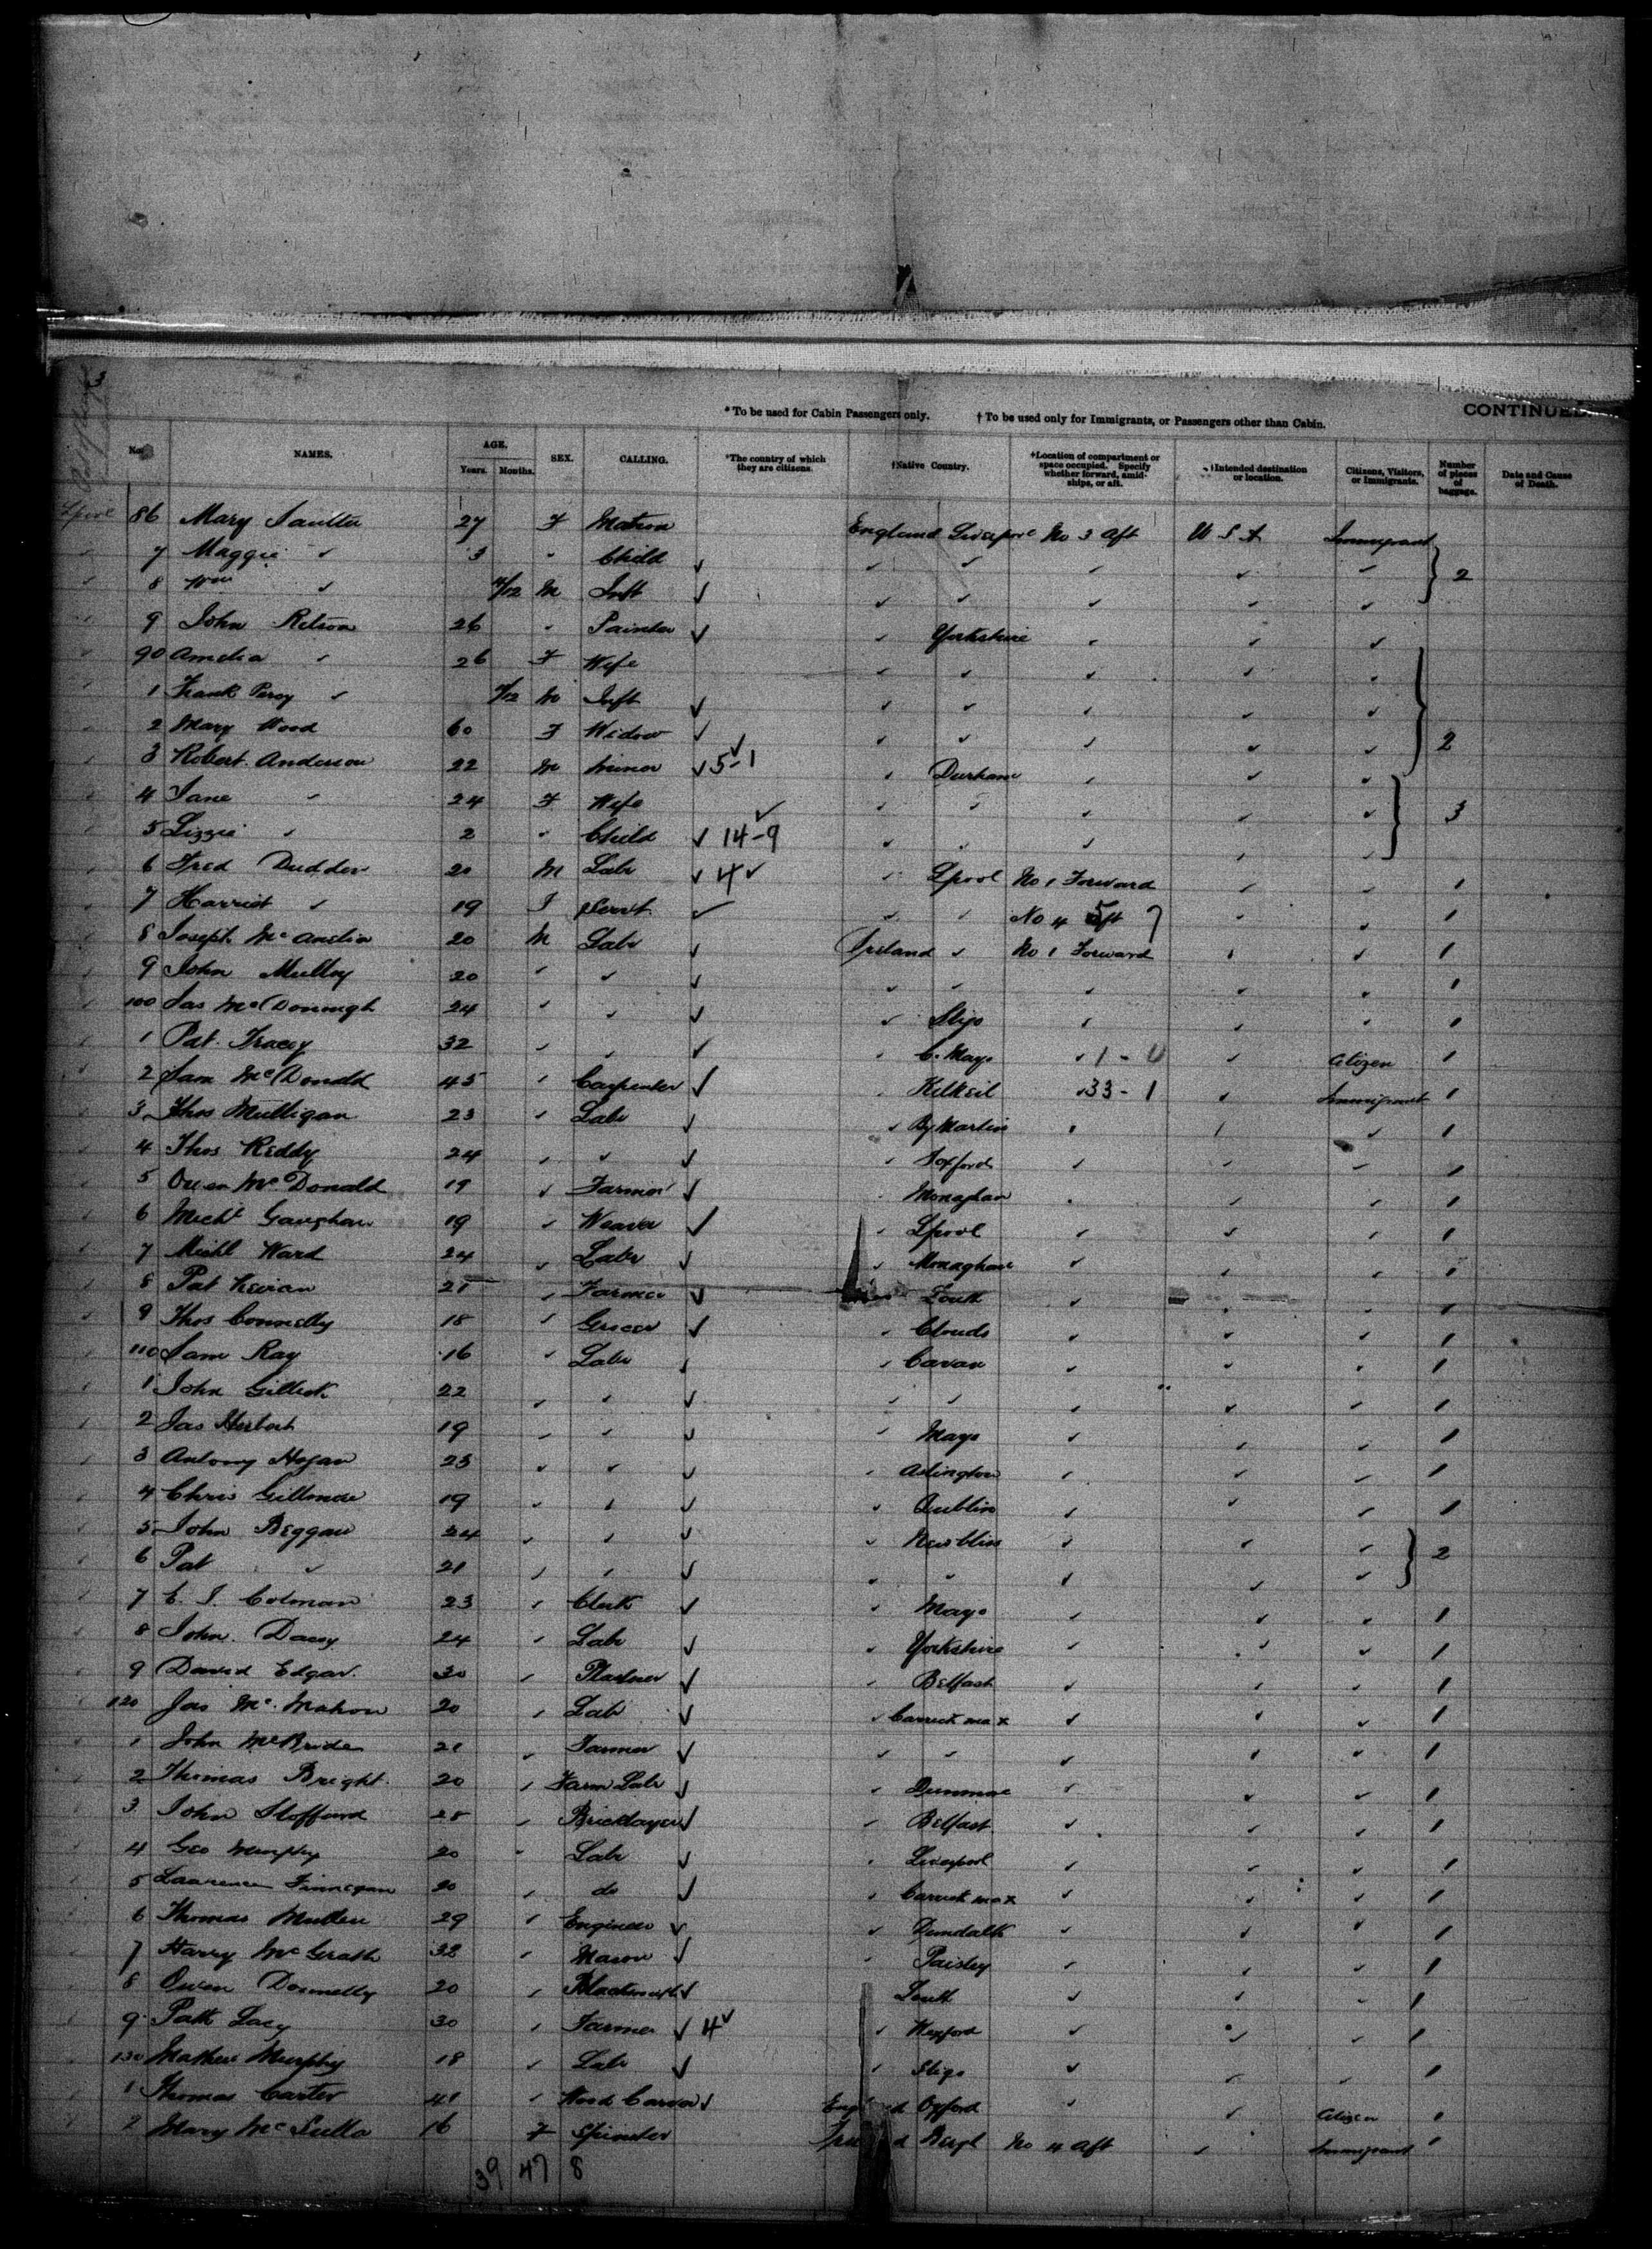 CONTINUED.
*To be used for Cabin Passengers only. †To be used only for Immigrants, or Passengers other than Cabin.
No. NAMES. AGE. Years. Months. SEX. CALLING. *The country of which they are citizens. †Native Country. †Location of compartment or space occupied. Specify whether forward, amidships, or aft. †Intended destination or location. Citizens, Visitors, or Immigrants. Number of pieces of baggage. Date and Cause of Death.
Lpool 86 Mary 27 F Matron England Liverpool No 3 Aft U S A Immigrant
7 Maggie ✓ 3 " Child ✓ ✓ ✓ ✓ ✓ ✓ } 2
8 Wm ✓ M Inft ✓ ✓ ✓ ✓ ✓ ✓
9 John 26 " Painter ✓ ✓ Yorkshire ✓ ✓ ✓
90 Amelia ✓ 26 F Wife ✓ ✓ ✓ ✓ ✓
1 Frank Percy ✓ M Inft ✓ ✓ ✓ ✓ ✓ ✓ }
2 Mary Wood 60 F Widow ✓ ✓ ✓ ✓ ✓ ✓ 2
3 Robert Anderson 22 M Miner ✓ 5-1 ✓ Durham ✓ ✓ ✓
4 Jane " 24 F Wife ✓ ✓ ✓ ✓ ✓ } 3
5 Lizzie " 2 " Child ✓ 14-9 ✓ ✓ ✓ ✓ ✓
6 Fred Dudder 20 M Labr ✓ 4 ✓ ✓ Lpool No 1 Forward ✓ ✓ 1
7 Harriet ✓ 19 F Servt ✓ ✓ ✓ No 4 Aft ✓ ✓ 1
8 Joseph 20 M Labr ✓ Ireland ✓ No 1 Forward ✓ ✓ 1
9 John 20 ✓ ✓ ✓ ✓ ✓ ✓ ✓ ✓ 1
100 Jas McDonough 24 ✓ ✓ ✓ ✓ Sligo ✓ ✓ ✓ 1
1 Pat. Tracey 32 ✓ ✓ ✓ ✓ C. Mayo ✓ 1 - ✓ Citizen 1
2 Sam McDonald 45 ✓ Carpenter ✓ ✓ Kilkeil 33 - 1 ✓ Immigrant 1
3 Thos Mulligan 23 ✓ Labr ✓ ✓ ✓ ✓ ✓ 1
4 Thos Reddy 24 ✓ ✓ ✓ ✓ Foxford ✓ ✓ ✓ 1
5 Owen McDonald 19 ✓ Farmer ✓ ✓ Monaghan ✓ ✓ ✓ 1
6 Michl Gaughan 19 ✓ Weaver ✓ ✓ Lpool ✓ ✓ ✓ 1
7 Michl Ward 24 ✓ Labr ✓ ✓ Monaghan ✓ ✓ ✓ 1
8 Pat 21 ✓ Farmer ✓ Louth ✓ ✓ ✓ 1
9 Thos Connelly 18 ✓ Grocer ✓ ✓ ✓ ✓ ✓ 1
110 Sam Ray 16 ✓ Labr ✓ ✓ Cavan ✓ ✓ ✓ 1
1 John 22 ✓ ✓ ✓ ✓ ✓ ✓ ✓ ✓ 1
2 Jas Herbert 19 ✓ ✓ ✓ ✓ Mayo ✓ ✓ ✓ 1
3 Antony Hogan 23 ✓ ✓ ✓ ✓ ✓ ✓ ✓ 1
4 Chris 19 ✓ ✓ ✓ ✓ Dublin ✓ ✓ ✓ 1
5 John Beggan 24 ✓ ✓ ✓ ✓ Newbliss ✓ ✓ ✓ } 2
6 Pat ✓ 21 ✓ ✓ ✓ ✓ ✓ ✓ ✓ ✓
7 Colman 23 ✓ Clerk ✓ ✓ Mayo ✓ ✓ ✓ 1
8 John 24 ✓ Labr ✓ ✓ Yorkshire ✓ ✓ ✓ 1
9 David Edgar. 30 ✓ ✓ ✓ Belfast ✓ ✓ ✓ 1
120 Jas McMahon 20 ✓ Labr ✓ ✓ Carrick max ✓ ✓ ✓ 1
1 John McBride 21 ✓ Farmer ✓ ✓ ✓ ✓ ✓ ✓ 1
2 Thomas Bright. 20 ✓ Farm Labr ✓ ✓ ✓ ✓ ✓ 1
3 John 28 ✓ Bricklayer ✓ ✓ Belfast ✓ ✓ ✓ 1
4 Geo Murphy 20 ✓ Labr ✓ ✓ Liverpool ✓ ✓ ✓ 1
5 Laurence Finnegan 20 ✓ do ✓ ✓ Carrick max ✓ ✓ ✓ 1
6 Thomas Mullen 29 ✓ Engineer ✓ ✓ Dundalk ✓ ✓ ✓ 1
7 Harry McGrath 32 ✓ Mason ✓ ✓ Paisley ✓ ✓ ✓ 1
8 Owen Donnelly 20 ✓ Blacksmith ✓ Louth ✓ ✓ ✓ 1
9 Patk Lacy 30 ✓ Farmer ✓ 4 ✓ ✓ Wexford ✓ ✓ ✓ 1
130 Mathew Murphy 18 ✓ Labr ✓ ✓ Sligo ✓ ✓ ✓ 1
1 Thomas Carter 41 ✓ Wood Carver ✓ Oxford ✓ ✓ Citizen 1
2 Mary 16 F Spinster No 4 Aft ✓ Immigrant 1
39 47 8